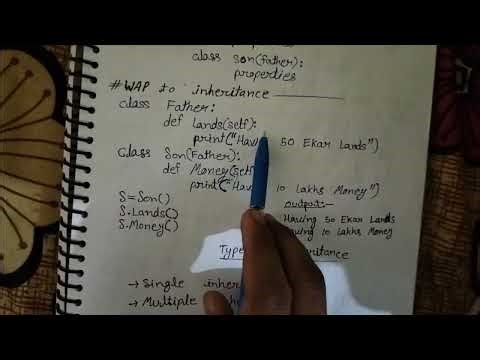 class Son(father):
properties
# WAP to inheritance
class Father:
def Lands(self):
print("Hav 50 Ekar Lands")
Class Son(Father):
def Money(self
print("Hav 10 lakhs Money")
S=Son()
output:-
S.Lands()
Having 50 Ekar Lands
S.Money()
Having 10 lakhs Money
Type heritance
→ Single inher
→ Multiple